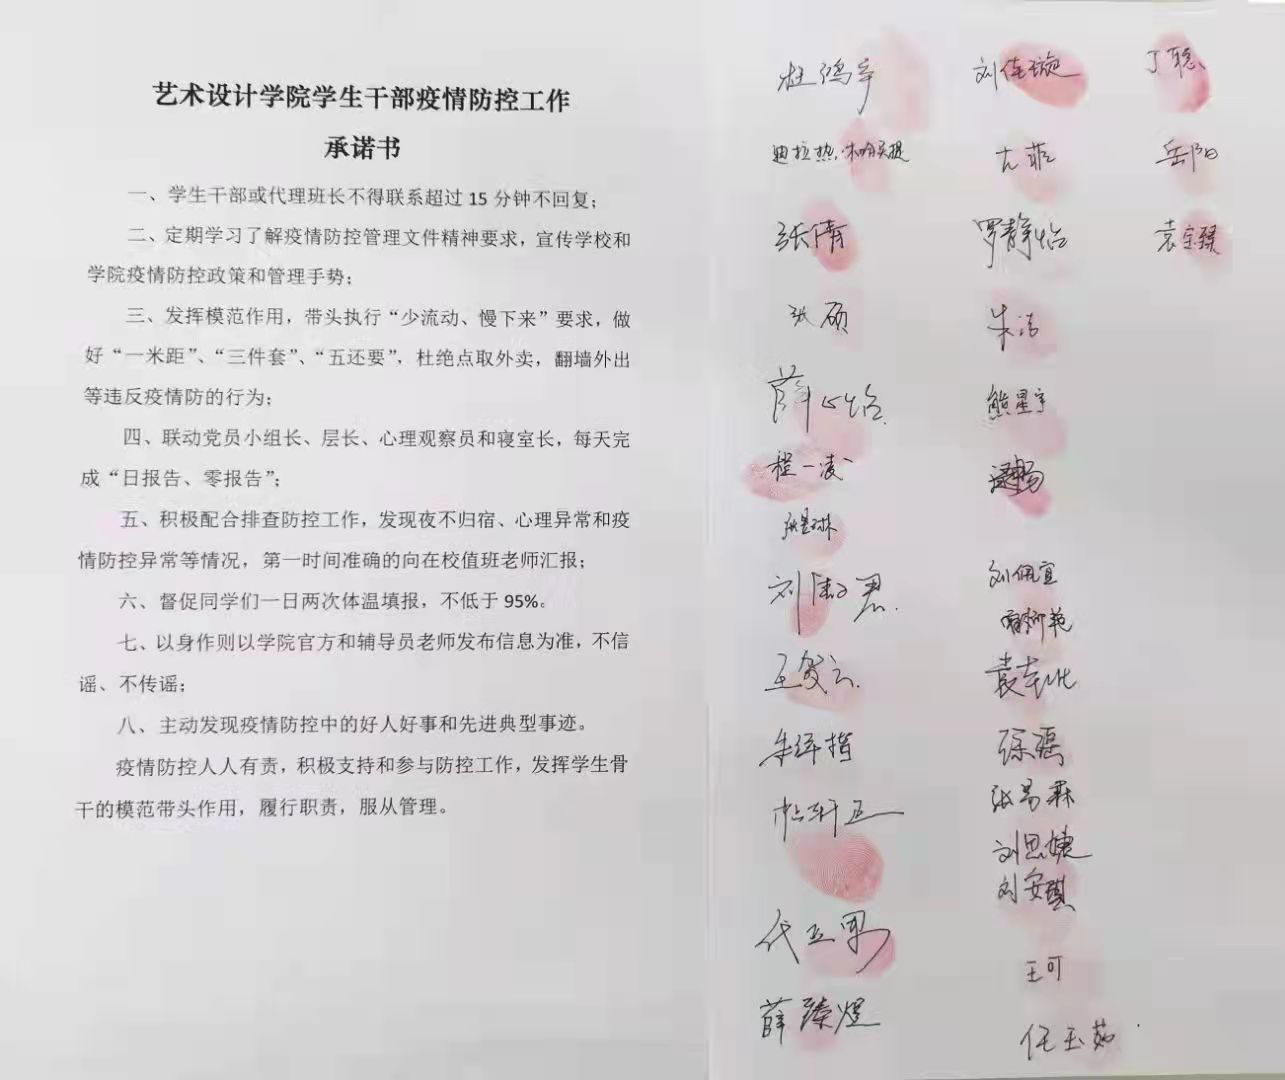 艺术设计学院学生干部疫情防控工作
承诺书
一、学生干部或代理班长不得联系超过 15 分钟不回复；
二、定期学习了解疫情防控管理文件精神要求，宣传学校和
学院疫情防控政策和管理手势；
三、发挥模范作用，带头执行“少流动、慢下来”要求，做
好“一米距”、“三件套”、“五还要”，杜绝点取外卖，翻墙外出
等违反疫情防的行为；
四、联动党员小组长、层长、心理观察员和寝室长，每天完
成“日报告、零报告”；
五、积极配合排查防控工作，发现夜不归宿、心理异常和疫
情防控异常等情况，第一时间准确的向在校值班老师汇报；
六、督促同学们一日两次体温填报，不低于 95%。
七、以身作则以学院官方和辅导员老师发布信息为准，不信
谣、不传谣；
八、主动发现疫情防控中的好人好事和先进典型事迹。
疫情防控人人有责，积极支持和参与防控工作，发挥学生骨
干的模范带头作用，履行职责，服从管理。
杜鸿宇
张倩
张硕
薛心怡
程一凌
王贺云
薛臻煜
刘佳璇
古菲
罗静怡
朱洁
熊星宇
刘佩宜
徐瑶
张易霖
刘思婕
刘安琪
王可
任玉茹
丁聪
岳阳